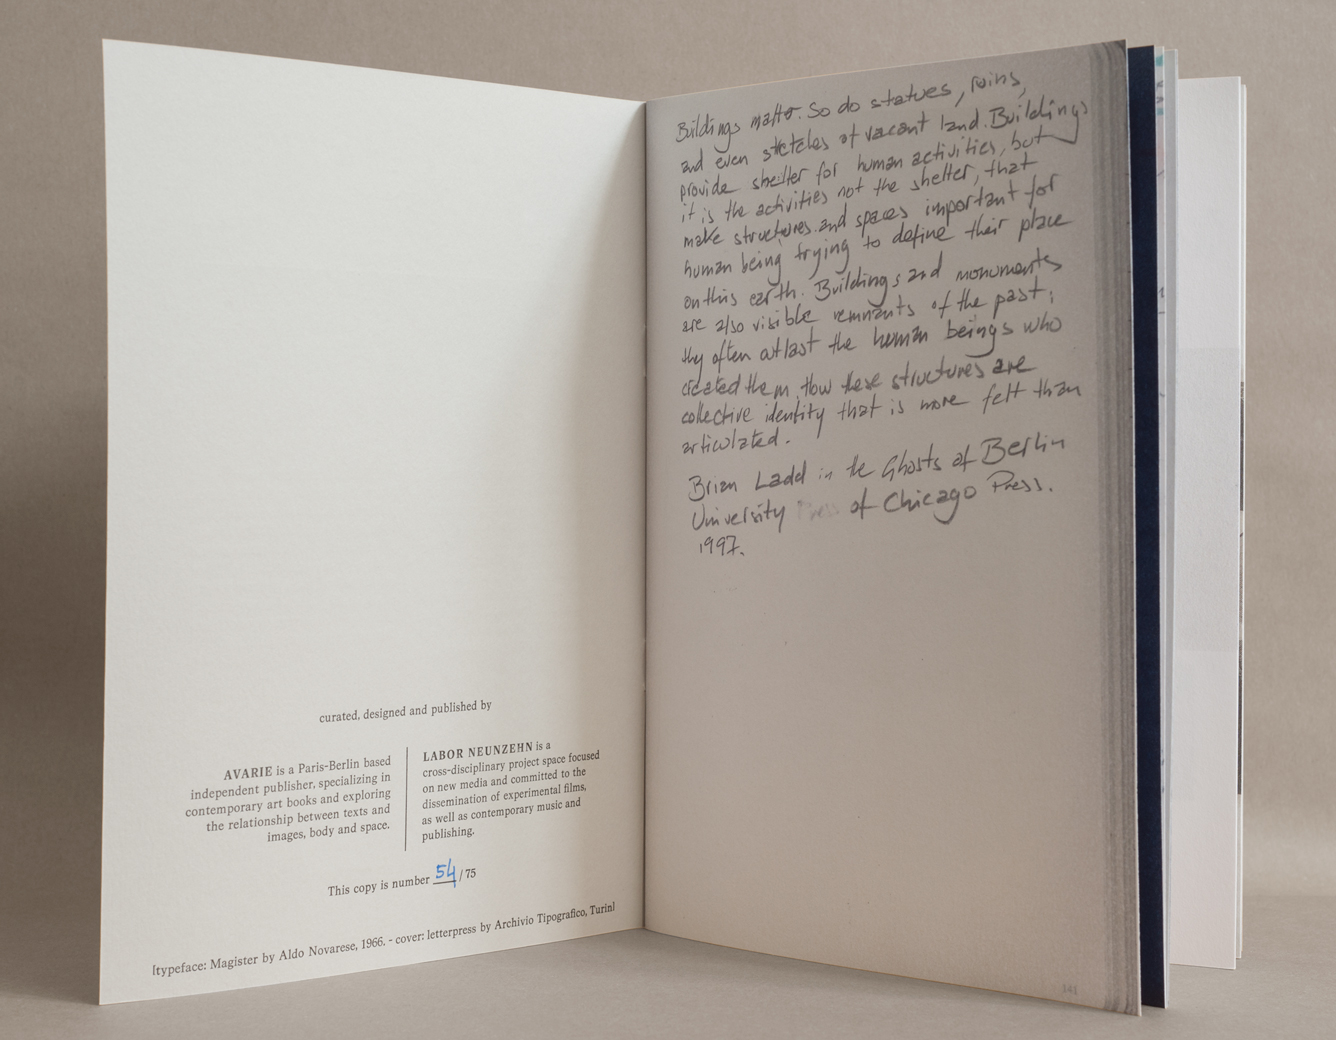 curated, designed and published by
AVARIE is a Paris-Berlin based
independent publisher, specializing in
contemporary art books and exploring
the relationship between texts and
images, body and space.
LABOR NEUNZEHN is a
cross-disciplinary project space focused
on new media and committed to the
dissemination of experimental films,
as well as contemporary music and
publishing.
This copy is number 54/75
[typeface: Magister by Aldo Novarese, 1966. - cover: letterpress by Archivio Tipografico, Turin]
Buildings matter. So do statues, ruins,
and even stretches of vacant land. Buildings
provide shelter for human activities, but
it is the activities not the shelter, that
make structures and spaces important for
human being trying to define their place
on this earth. Buildings and monuments
are also visible remnants of the past;
they often outlast the human beings who
created them, How these structures are
collective identity that is more felt than
articulated.
Brian Ladd in the Ghosts of Berlin
University Press of Chicago Press.
1997.
141